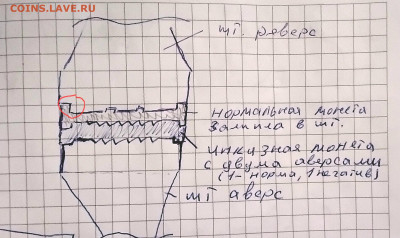 COINS.LAVE.RU
шт. реверс
нормальная монета
залипла в шт.
инкузная монета
с двума аверсами
(1- норма, 1 негатив)
шт аверс